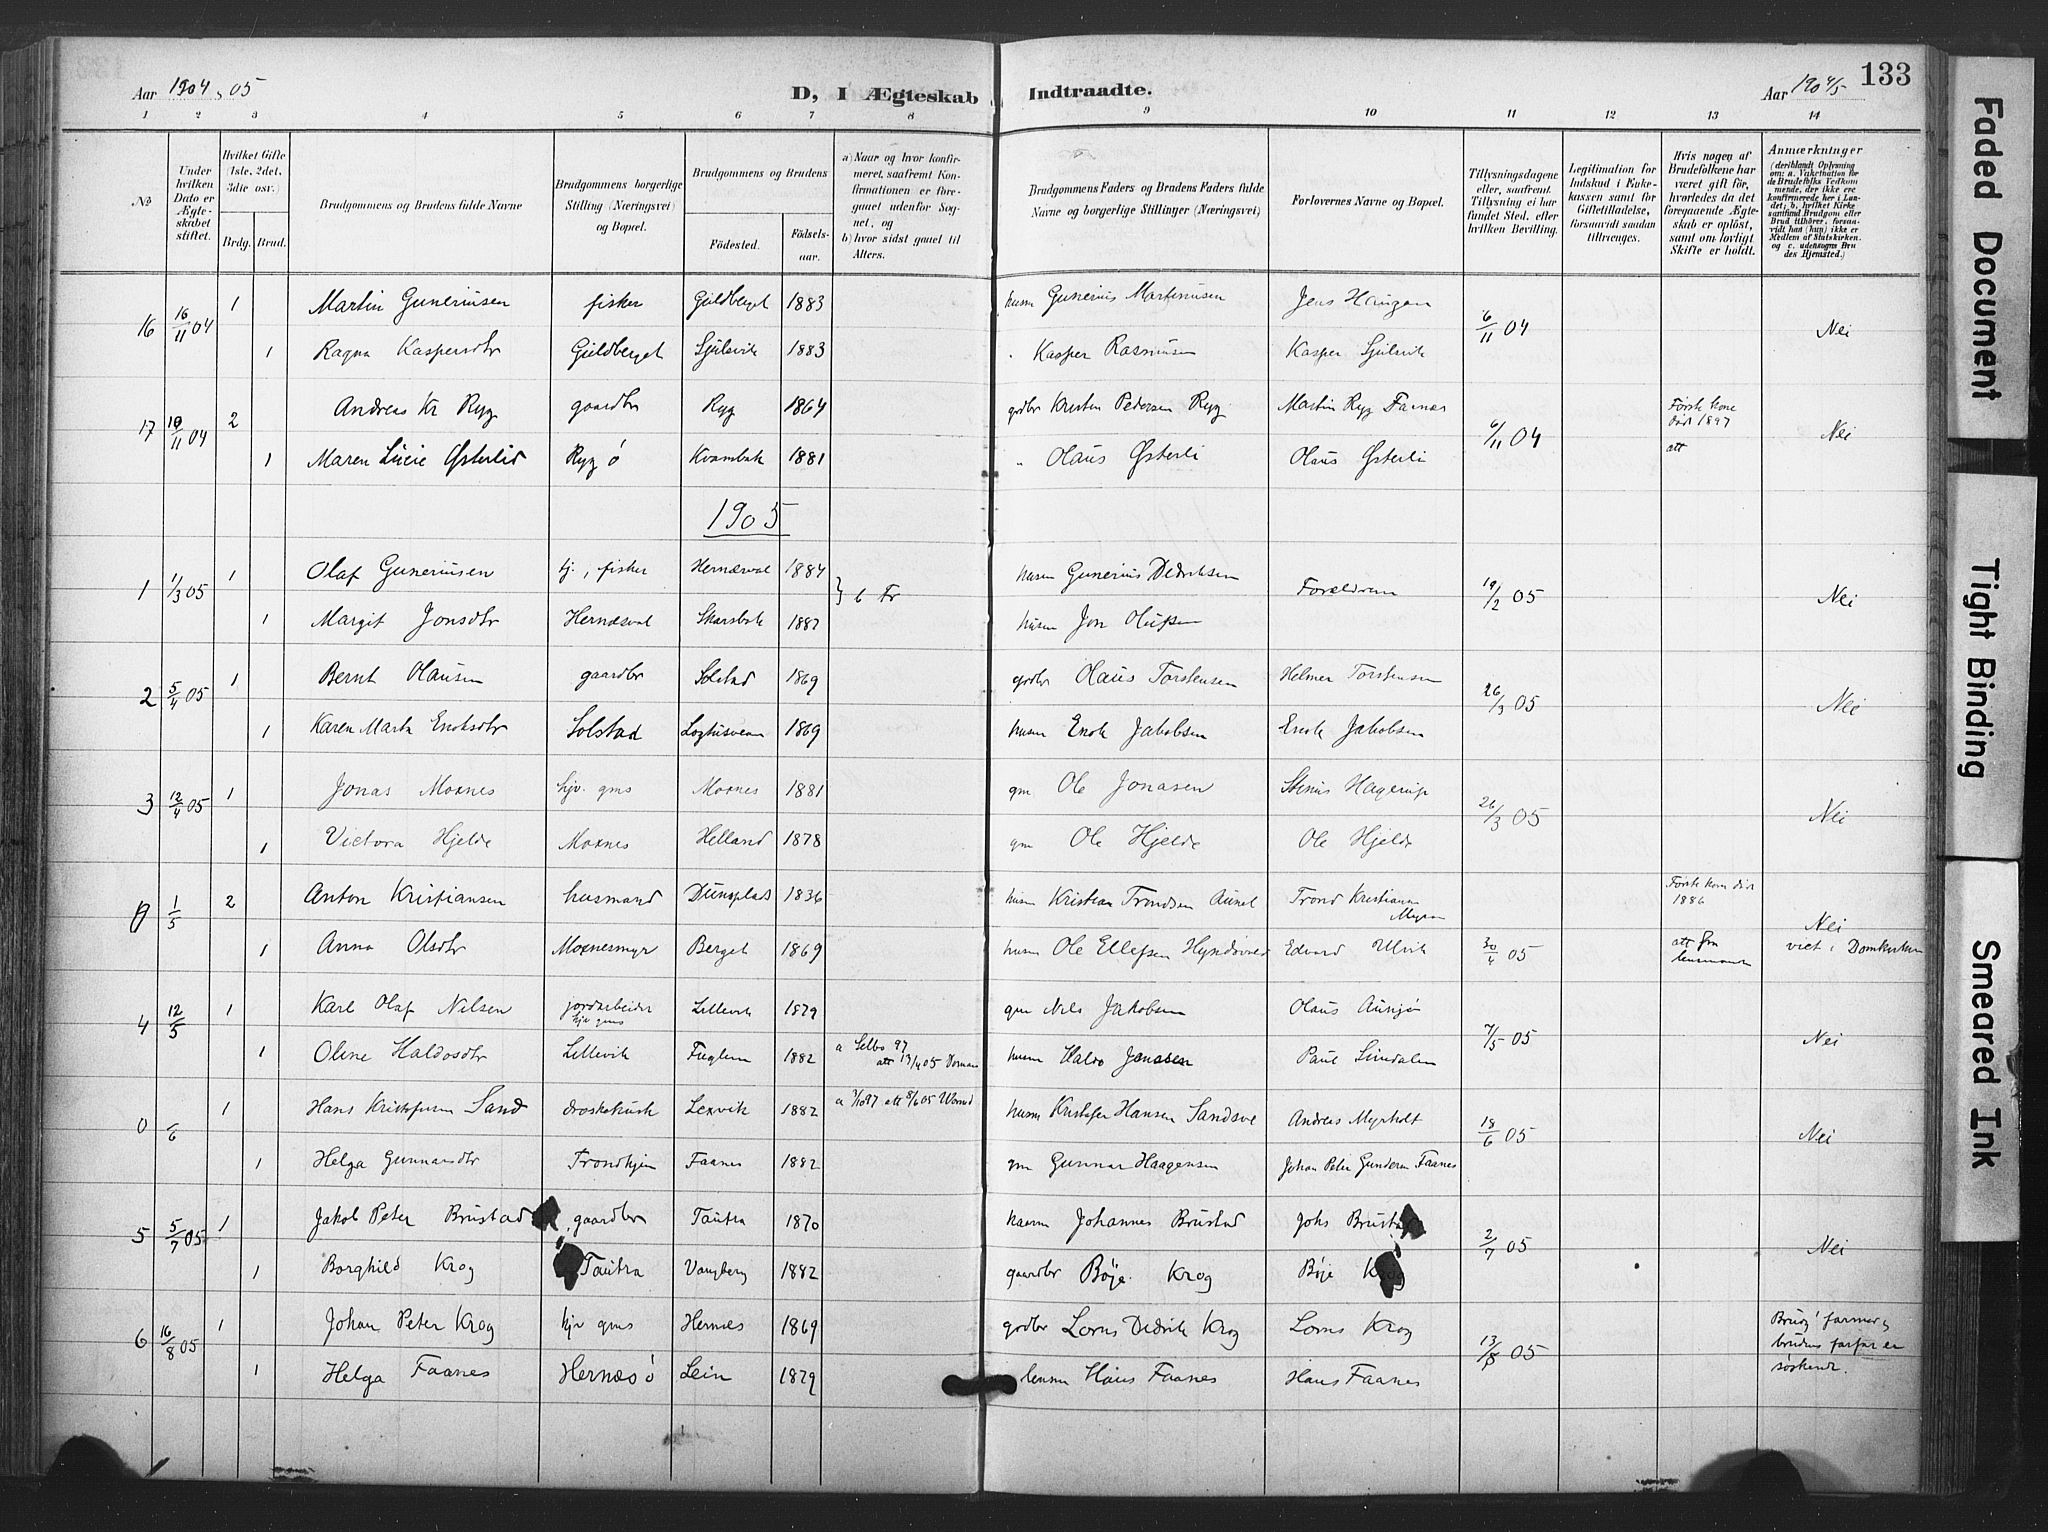 Aar 1904, 05
D, I Ægteskab Indtraadte.
Aar 1904/5
133
1 2 3 4 5 6 7 8 9 10 11 12 13 14
No
Under hvilken Dato er Ægteskabet stiftet.
Hvilket Gifte (1ste, 2det, 3die osv.)
Brdg. Brud.
Brudgommens og Brudens fulde Navne
Brudgommens borgerlige Stilling (Næringsvei) og Bopæl.
Brudgommens og Brudens
Födested. Födsels-aar.
a) Naar og hvor konfirmeret, saafremt Konfirmationen er foregaaet udenfor Sognet, og
b) hvor sidst gaaet til Alters.
Brudgommens Faders og Brudens Faders fulde Navne og borgerlige Stillinger (Næringsvei)
Forlovernes Navne og Bopæl.
Tillysningsdagene eller, saafremt Tillysning ei har fundet Sted, efter hvilken Bevilling.
Legitimation for Indskud i Enkekassen samt for Giftetilladelse, forsaavidt saadan tiltrænges.
Hvis nogen af Brudefolkene har været gift för, hvorledes da det foregaaende Ægteskab er oplöst, samt om lovligt Skifte er holdt.
Anmærkninger
(deriblandt Oplysning om: a. Vaksination for de Brudefolks Vedkommende, der ikke ere konfirmerede her i Landet; b. hvilket Kirkesamfund Brudgom eller Brud tilhörer, forsaavidt han (hun) ikke er Medlem af Statskirken, og c. udensogns Brudes Hjemsted.)
16 16/11 04 1 Martin Guneriussen fisker Guldberget 1883 husm Gunerius Martinussen Jens Haugen 6/11 04 Nei
1 Ragna Kaspersdtr Guldberget Sjulsvik 1883 " Kasper Rasmussen Kasper Sjulsvik
17 10/11 04 2 Andreas Kr Ryg gaardbr Ryg 1864 grdbr Kristen Pedersen Ryg Martin Ryg Faanes 6/11 04 Første kone død 1897 Nei
1 Maren Lucie Østerlid Ryg ö Kvambak 1881 " Olaus Østerli Olaus Østerli att
1905
1 1/3 05 1 Olaf Guneriusen kj., fisker Hernæsval 1884 } b Fr husm Gunerius Didriksen Foreldrene 19/2 05 Nei
1 Margit Jonsdtr Hernæsval Skarsbak 1882 husm Jon Olufsen
2 5/4 05 1 Bernt Olausen gaardbr Solstad 1869 grdbr Olaus Torstensen Helmer Torstensen 26/3 05 Nei
1 Karen Marta Enoksdtr Solstad 1869 husm Enok Jakobsen Enok Jakobsen
3 12/4 05 1 Jonas Moxnes kjv. gms Moxnes 1881 gm Ole Jonasen Stenius Hagerup 26/3 05 Nei
1 Victora Hjelde Moxnes Helland 1878 gm Ole Hjelde Ole Hjelde
0 1/5 2 Anton Kristiansen husmand 1836 husm Kristian Trondsen Trond Kristiansen Myran Første kone død 1886 Nei
1 Anna Olsdtr Moxnesmyr Berget 1869 husm Ole Ellefsen Edvard Ulvik 30/4 05 att fra lensmanden viet i Domkirken
4 12/5 1 Karl Olaf Nilsen jordarbeider kjv gms Lillevik 1879 gm Nils Jakobsen Olaus Aunsjø 7/5 05 Nei
1 Oline Haldosdtr Lillevik Fuglem 1882 a Selbo 97 att 19/4 05 husm Haldo Jonassen Paul Lundalen
0 /6 1 Hans Kristofersen Sand droskekusk Lexvik 1882 husm Kristofer Hansen Sandsve Andreas Myrholt 18/6 05 Nei
1 Helga Gunnarsdtr Trondhjem Faanes 1882 gm Gunnar Haagensen Johan Peter Gundersen Faanes
5 5/7 05 1 Jakob Peter Brustad gaardbr Tautra 1870 Johannes Brustad Johs Brustad 2/7 05 Nei
1 Borghild Krog Tautra Vangberg 1882 gaardbr Böje Krog Böje Krog
6 16/8 05 1 Johan Peter Krog kjv gms Hernes 1869 grdbr Lorns Didrik Krog Lorns Krog 13/8 05 Brudg' farmor og brudens farfar er søskende.
1 Helga Faanes Hernæs ö Lein 1879 lensm Hans Faanes Hans Faanes
Faded Document
Tight Binding
Smeared Ink